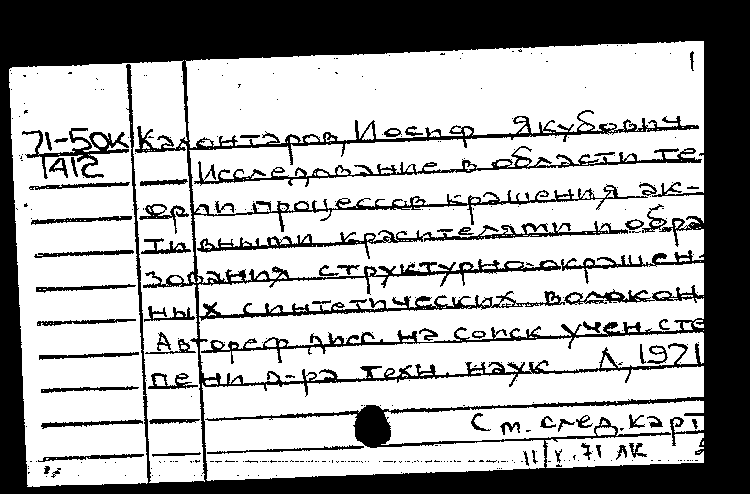 1
71-50К Калонтаров, Иосиф Якубович
1412 Исследование в области те-
ории процессов крашения ак-
тивными красителями и обра
зования структурно-окрашен-
ных синтетических волокон
Автореф дисс. на соиск учен. сте
пени д-ра техн. наук Л, 1971
См. след. карт
11/X.71 ЛК